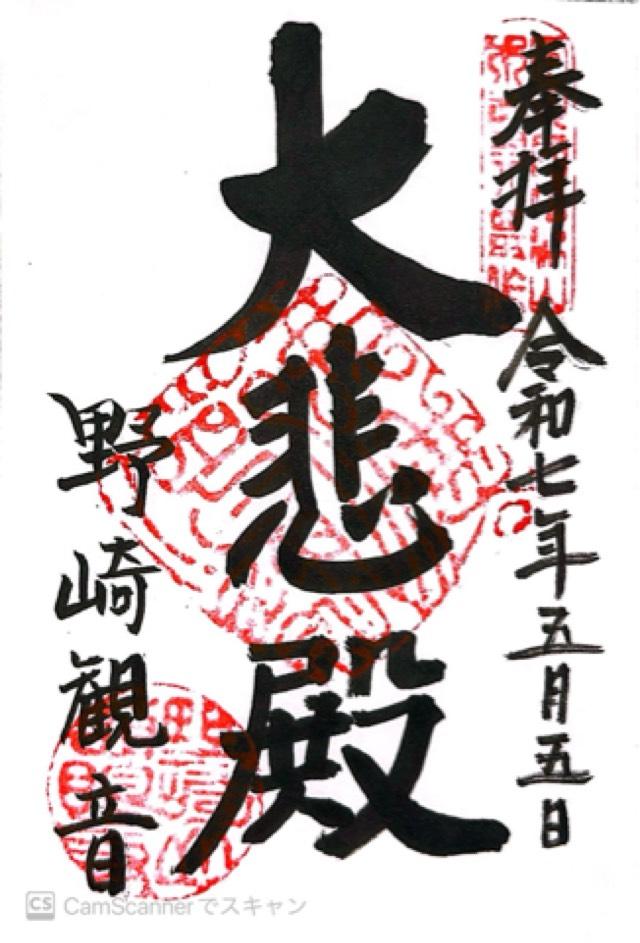 奉拝
令和七年五月五日
大悲殿
野崎観音
CS CamScannerでスキャン